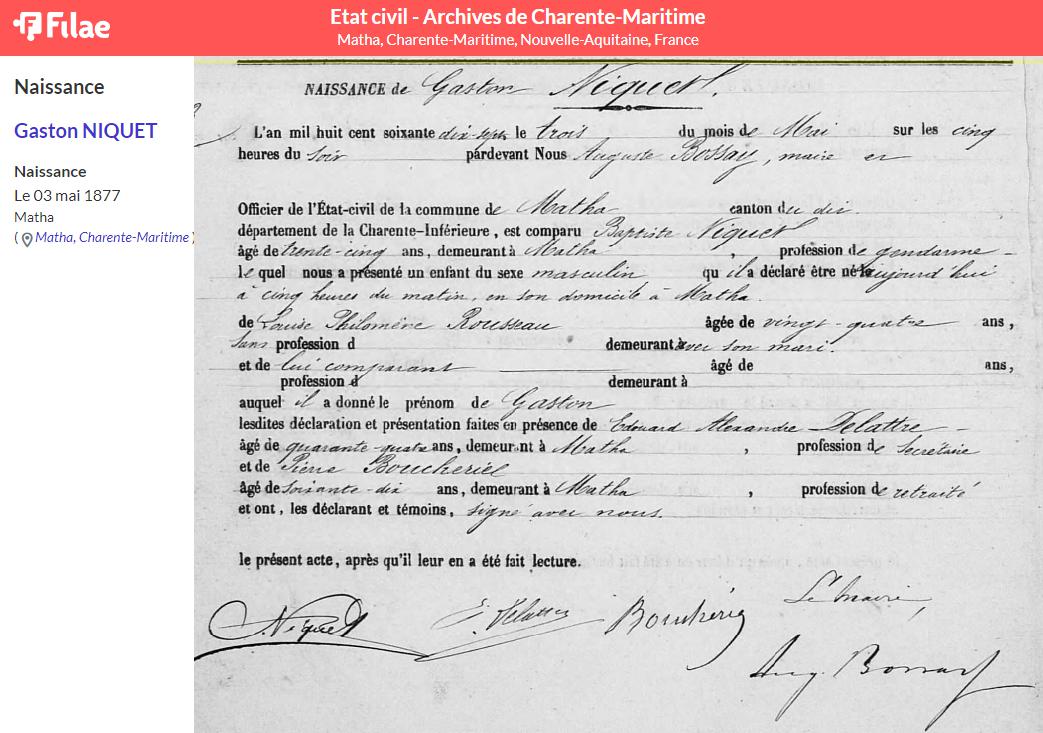 Filae
Etat civil - Archives de Charente-Maritime
Matha, Charente-Maritime, Nouvelle-Aquitaine, France
Naissance
Gaston NIQUET
Naissance
Le 03 mai 1877
Matha
( Matha, Charente-Maritime )
NAISSANCE de Gaston Niquet.
L'an mil huit cent soixante dix-sept le trois du mois de Mai sur les cinq
heures du soir pardevant Nous Auguste Bossay, maire et
Officier de l'État-civil de la commune de Matha canton du dit
département de la Charente-Inférieure, est comparu Baptiste Niquet
âgé de trente-cinq ans, demeurant à Matha, profession de gendarme
lequel nous a présenté un enfant du sexe masculin qu'il a déclaré être né aujourd'hui
à cinq heures du matin, en son domicile à Matha.
de Louise Philomène Rousseau âgée de vingt-quatre ans,
sans profession d demeurant avec son mari.
et de lui comparant âgé de ans,
profession d demeurant à
auquel il a donné le prénom de Gaston
lesdites déclaration et présentation faites en présence de Edouard Alexandre Delattre
âgé de quarante-quatre ans, demeurant à Matha, profession de Secrétaire
et de Pierre
âgé de soixante-dix ans, demeurant à Matha, profession de retraité
et ont, les déclarant et témoins, signé avec nous.
le présent acte, après qu'il leur en a été fait lecture.
Le Maire,
Niquet E. Delattre
Aug. Bossay